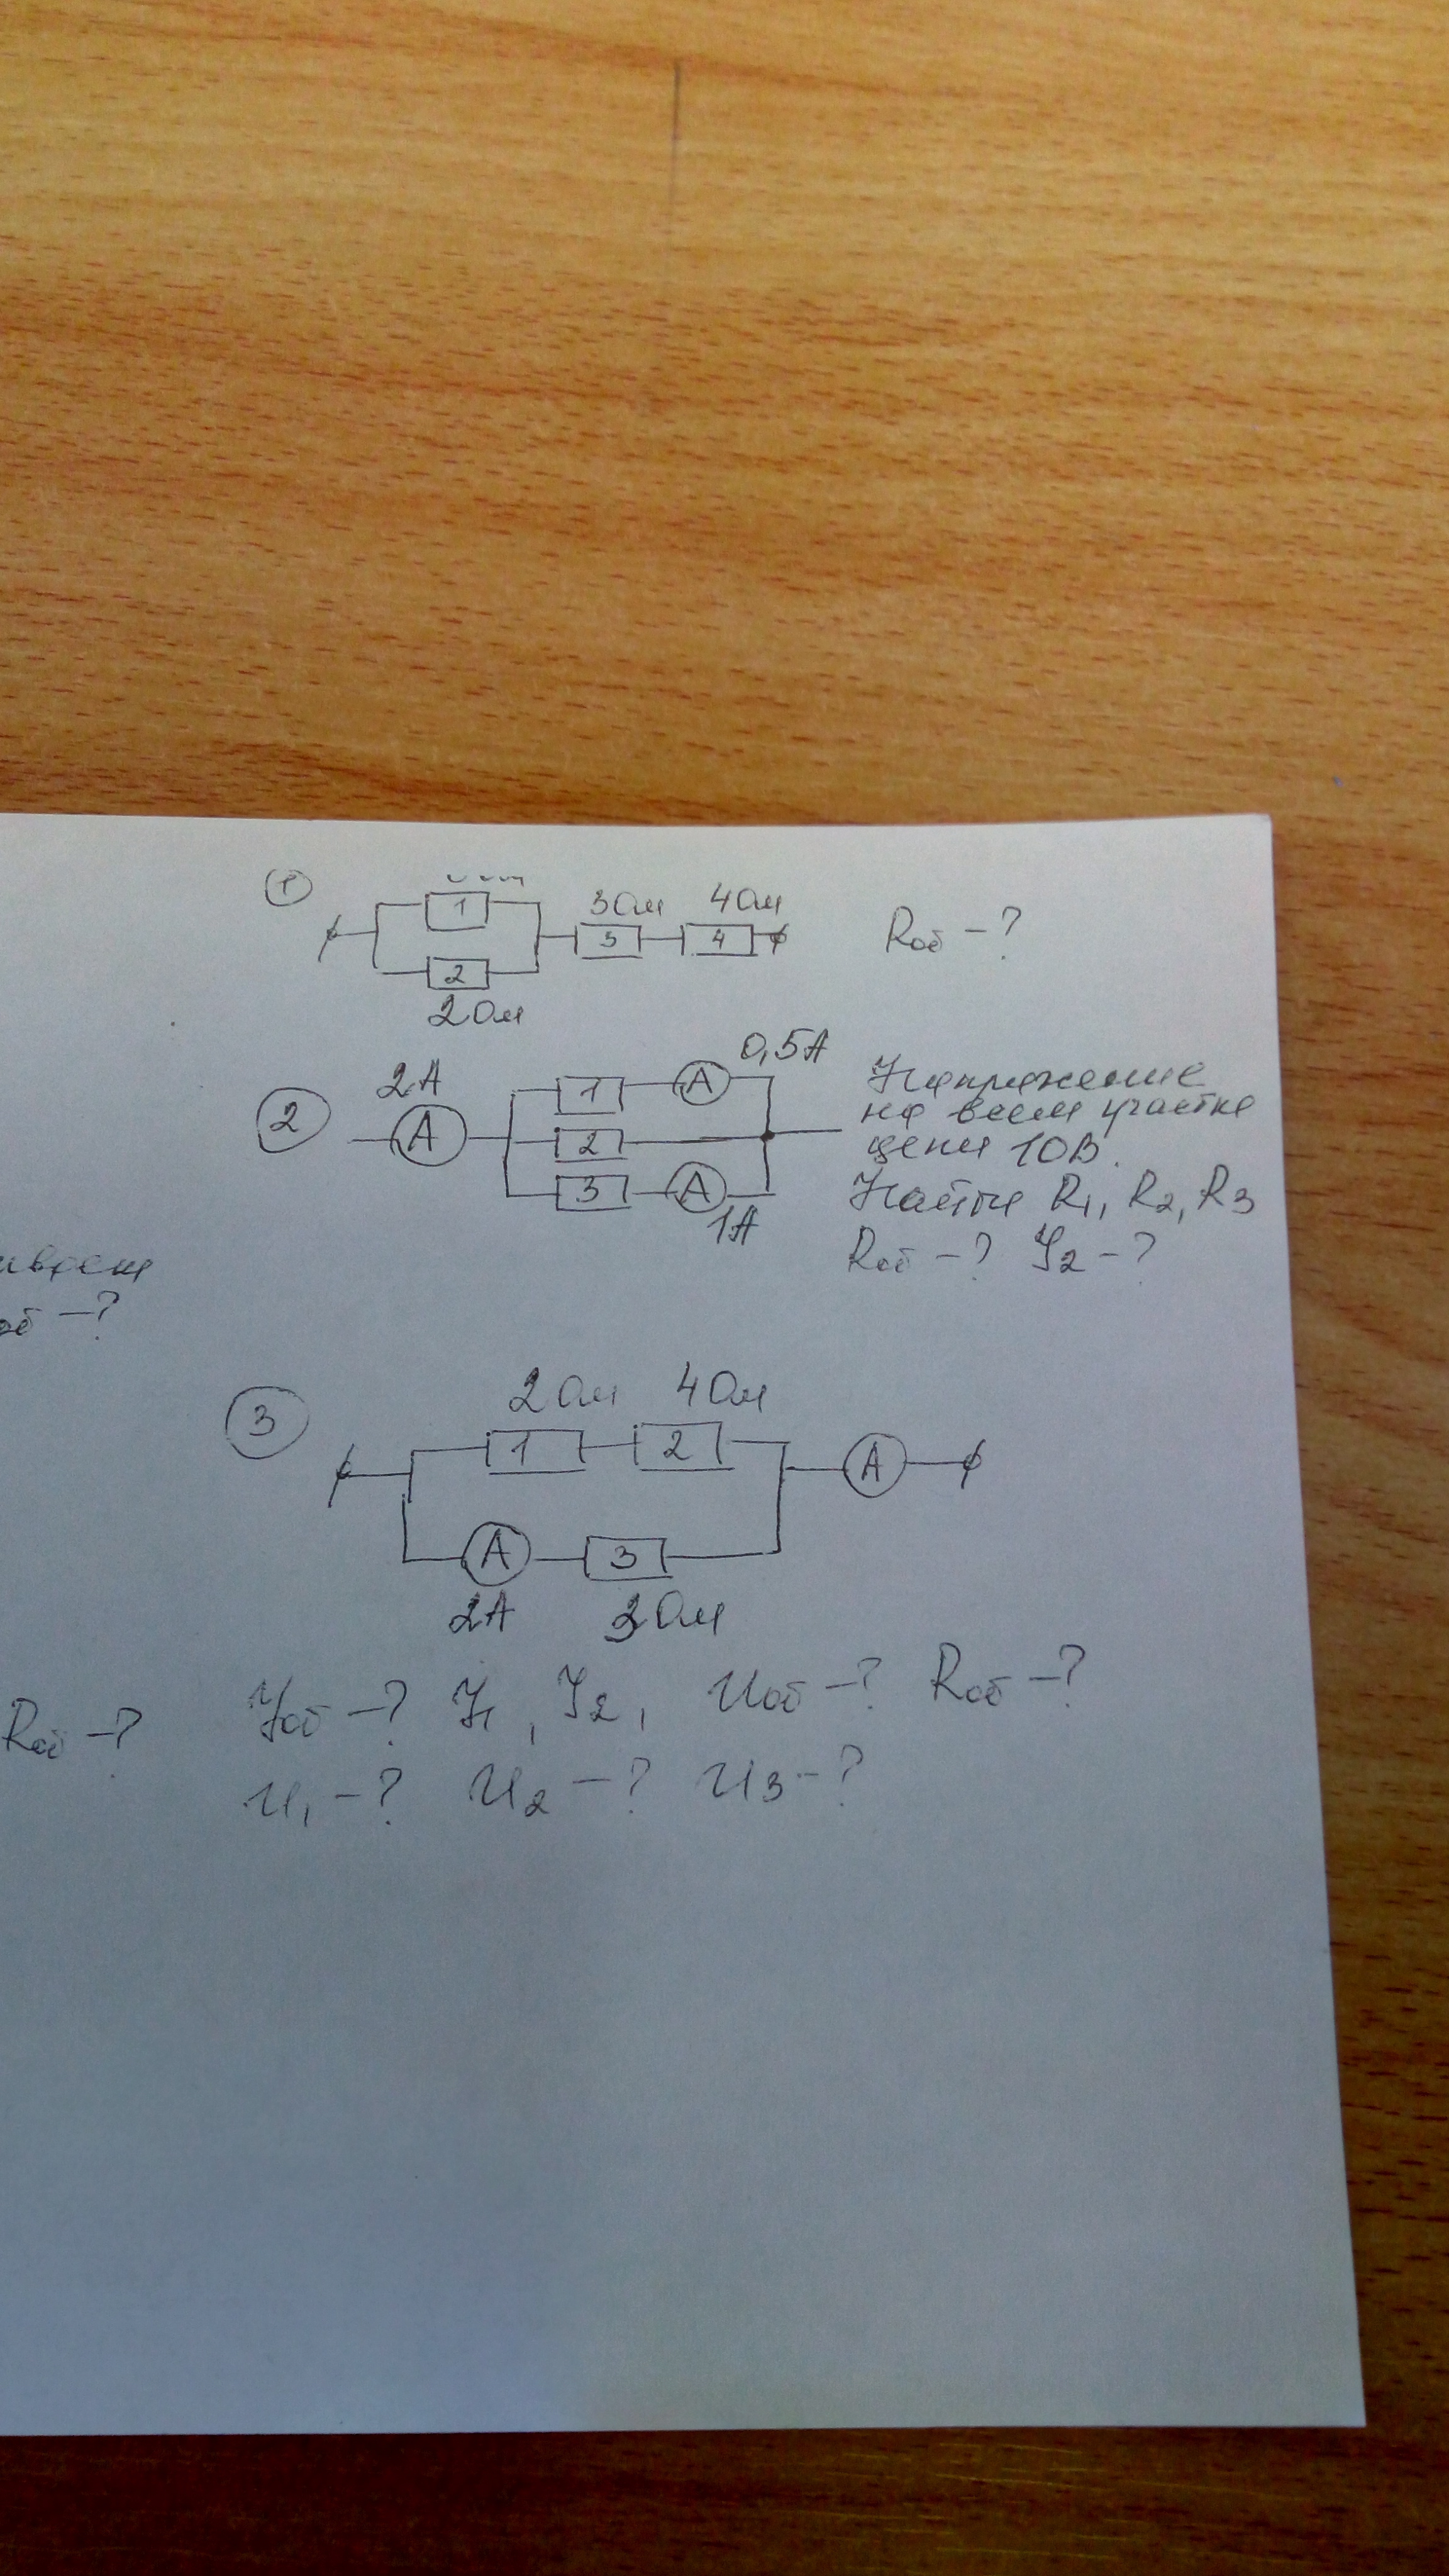 1
1
3 Ом 4 Ом
3 4
Rоб - ?
2
2 Ом
2
2А
А
1 А 0,5А
2
3 А
1А
Напряжение
на всем участке
цепи 10В.
Найти R1, R2, R3
Rоб - ? I2 - ?
об - ?
3
2 Ом 4 Ом
1 2
А
А 3
2А
Rоб - ?
Iоб - ? I1, I2, Uоб - ? Rоб - ?
U1 - ? U2 - ? U3 - ?